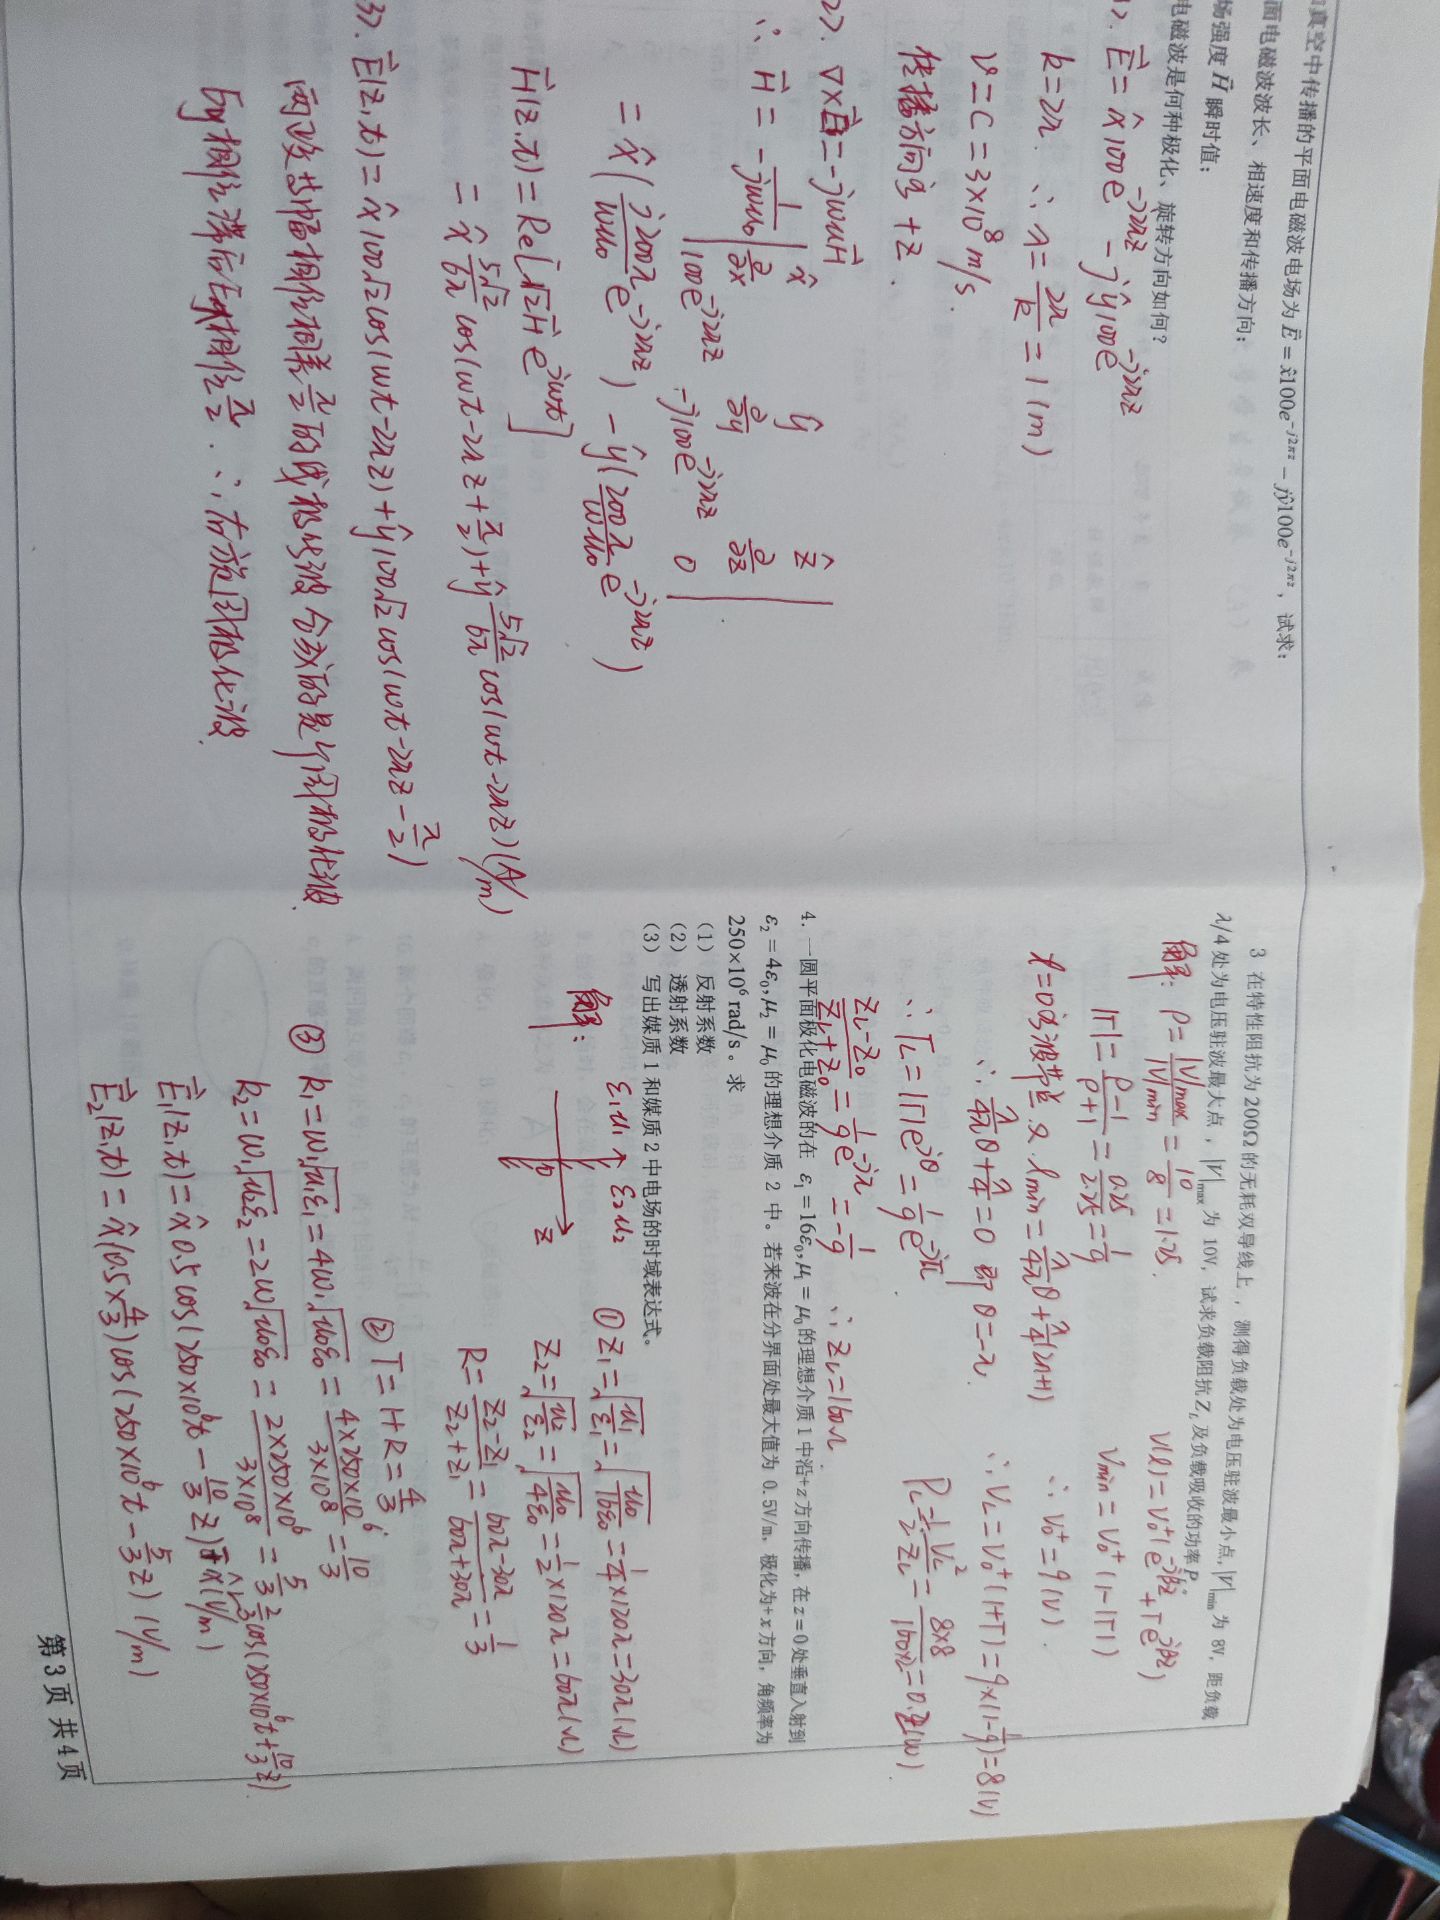 真空中传播的平面电磁波电场为 E⃗ = x̂100e^{-j2πz} − jŷ100e^{-j2πz}，试求：
面电磁波波长、相速度和传播方向；
场强度 H⃗ 瞬时值；
电磁波是何种极化、旋转方向如何？
1). E⃗ = x̂100e^{-j2πz} − jŷ100e^{-j2πz}
k=2π ∴ λ = 2π/k = 1 (m)
v=c=3×10⁸ m/s.
传播方向为 +z.
2). ∇×E⃗=-jwuH⃗
∴ H⃗ = -1/jwu₀ | x̂ ŷ ẑ
∂/∂x ∂/∂y ∂/∂z
100e^{-j2πz} -j100e^{-j2πz} 0 |
= x̂(j200π/wu₀ e^{-j2πz}) − ŷ(200π/wu₀ e^{-j2πz})
H⃗(z,t) = Re[√2H⃗e^{jwt}]
= x̂ 5√2/6π cos(wt-2πz+π/2)+ŷ 5√2/6π cos(wt-2πz)(A/m)
3). E⃗(z,t) = x̂100√2cos(wt-2πz)+ŷ100√2cos(wt-2πz-π/2)
两正交等幅相位相差π/2的线极化波合成的是个圆极化波.
Ey相位滞后Ex相位π/2. ∴ 右旋圆极化波.
3 在特性阻抗为200Ω的无耗双导线上，测得负载处为电压驻波最小点，|V|min 为 8V，距负载
λ/4 处为电压驻波最大点，|V|max 为 10V，试求负载阻抗 Z_L 及负载吸收的功率 P_L。
解: ρ = |V|max/|V|min = 10/8 = 1.25.
|Γ| = ρ-1/ρ+1 = 0.25/2.25 = 1/9
l=0为波节点 又 lmin = λ/4π θ + λ/4(2n+1)
∴ λ/4π θ + λ/4 = 0 即 θ=-π.
∴ Γ_L = |Γ|e^{jθ} = 1/9 e^{-jπ}.
Z_L-Z₀/Z_L+Z₀ = 1/9 e^{-jπ} = -1/9 ∴ Z_L=160Ω
V(l)=V₀⁺(e^{-jβz}+Γe^{jβz})
Vmin = V₀⁺(1-|Γ|)
∴ V₀⁺=9(V).
∴ V_L=V₀⁺(1+Γ)=9×(1-1/9)=8(V)
P_L=1/2 V_L²/Z_L = 8×8/160×2=0.2(W).
4. 一圆平面极化电磁波的在 ε₁=16ε₀,μ₁=μ₀的理想介质 1 中沿+z 方向传播，在 z=0处垂直入射到
ε₂=4ε₀,μ₂=μ₀的理想介质 2 中。若来波在分界面处最大值为 0.5V/m，极化为+x 方向，角频率为
250×10⁶ rad/s。求
（1） 反射系数
（2） 透射系数
（3） 写出媒质 1 和媒质 2 中电场的时域表达式。
解: ε₁u₁ ε₂u₂
0 z
① Z₁=√(u₁/ε₁)=√(u₀/16ε₀)=1/4×120π=30π(Ω)
Z₂=√(u₂/ε₂)=√(u₀/4ε₀)=1/2×120π=60π(Ω)
R=Z₂-Z₁/Z₂+Z₁=60π-30π/60π+30π=1/3
② T=1+R=4/3.
③ k₁=w₁√u₁ε₁=4w₁√u₀ε₀=4×250×10⁶/3×10⁸=10/3
k₂=w₁√u₂ε₂=2w√u₀ε₀=2×250×10⁶/3×10⁸=5/3
E⃗₁(z,t)=x̂0.5cos(250×10⁶t-10/3z)+x̂ cos(250×10⁶t+10/3z).(V/m)
E⃗₂(z,t)=x̂(0.5×4/3)cos(250×10⁶t-5/3z) (V/m)
第 3 页 共 4 页